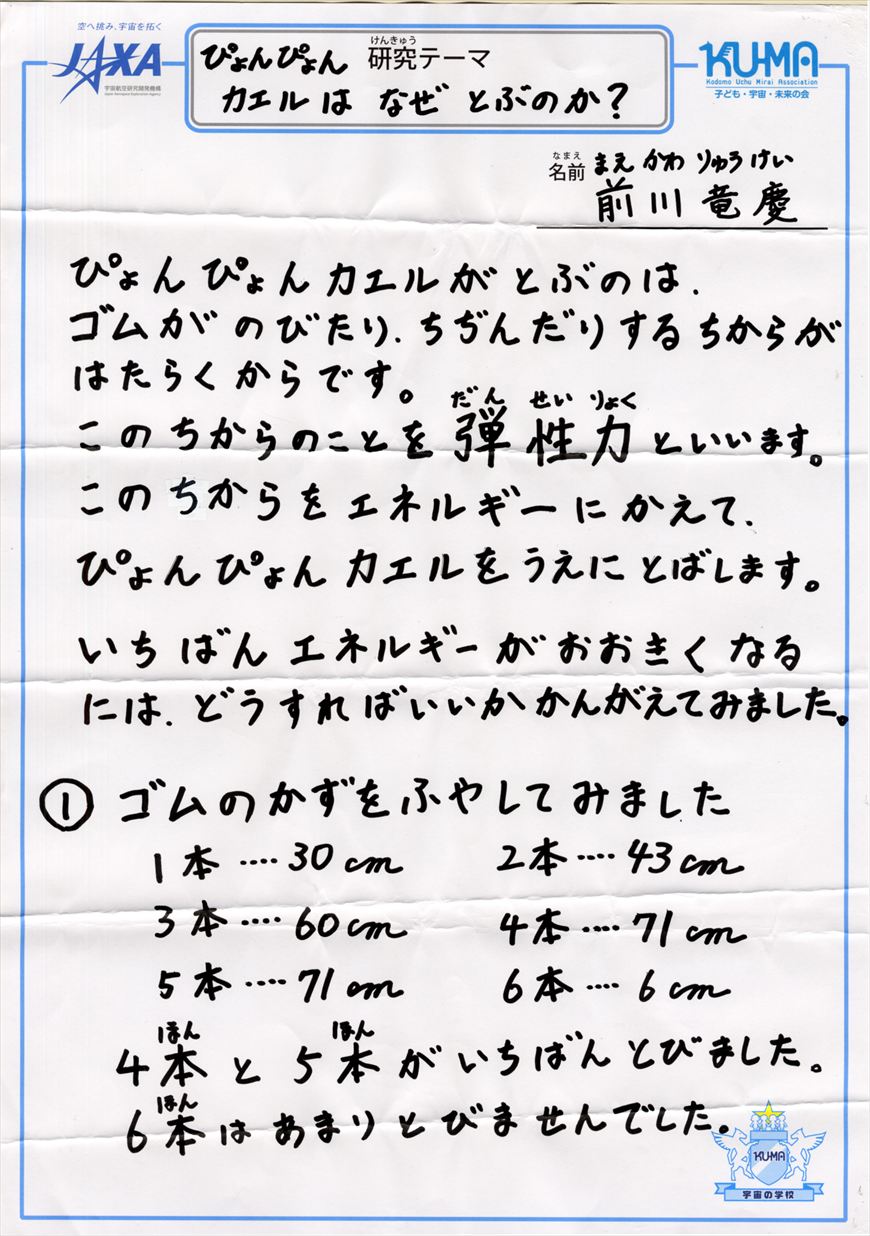 空へ挑み、宇宙を拓く
JAXA
宇宙航空研究開発機構
Japan Aerospace Exploration Agency
けんきゅう
研究テーマ
ぴょんぴょん
カエルは なぜ とぶのか?
KU-MA
Kodomo Uchu Mirai Association
子ども・宇宙・未来の会
なまえ まえ かわ りゅう けい
名前 前川竜慶
ぴょんぴょんカエルがとぶのは、
ゴムがのびたり、ちぢんだりするちからが
はたらくからです。
だん せい りょく
このちからのことを弾性力といいます。
このちからをエネルギーにかえて、
ぴょんぴょんカエルをうえにとばします。
いちばんエネルギーがおおきくなる
には、どうすればいいかかんがえてみました。
① ゴムのかずをふやしてみました
1本‥‥30cm 2本‥‥43cm
3本‥‥60cm 4本‥‥71cm
5本‥‥71cm 6本‥‥6cm
ほん ほん
4本と5本がいちばんとびました。
ほん
6本はあまりとびませんでした。
KU-MA
宇宙の学校